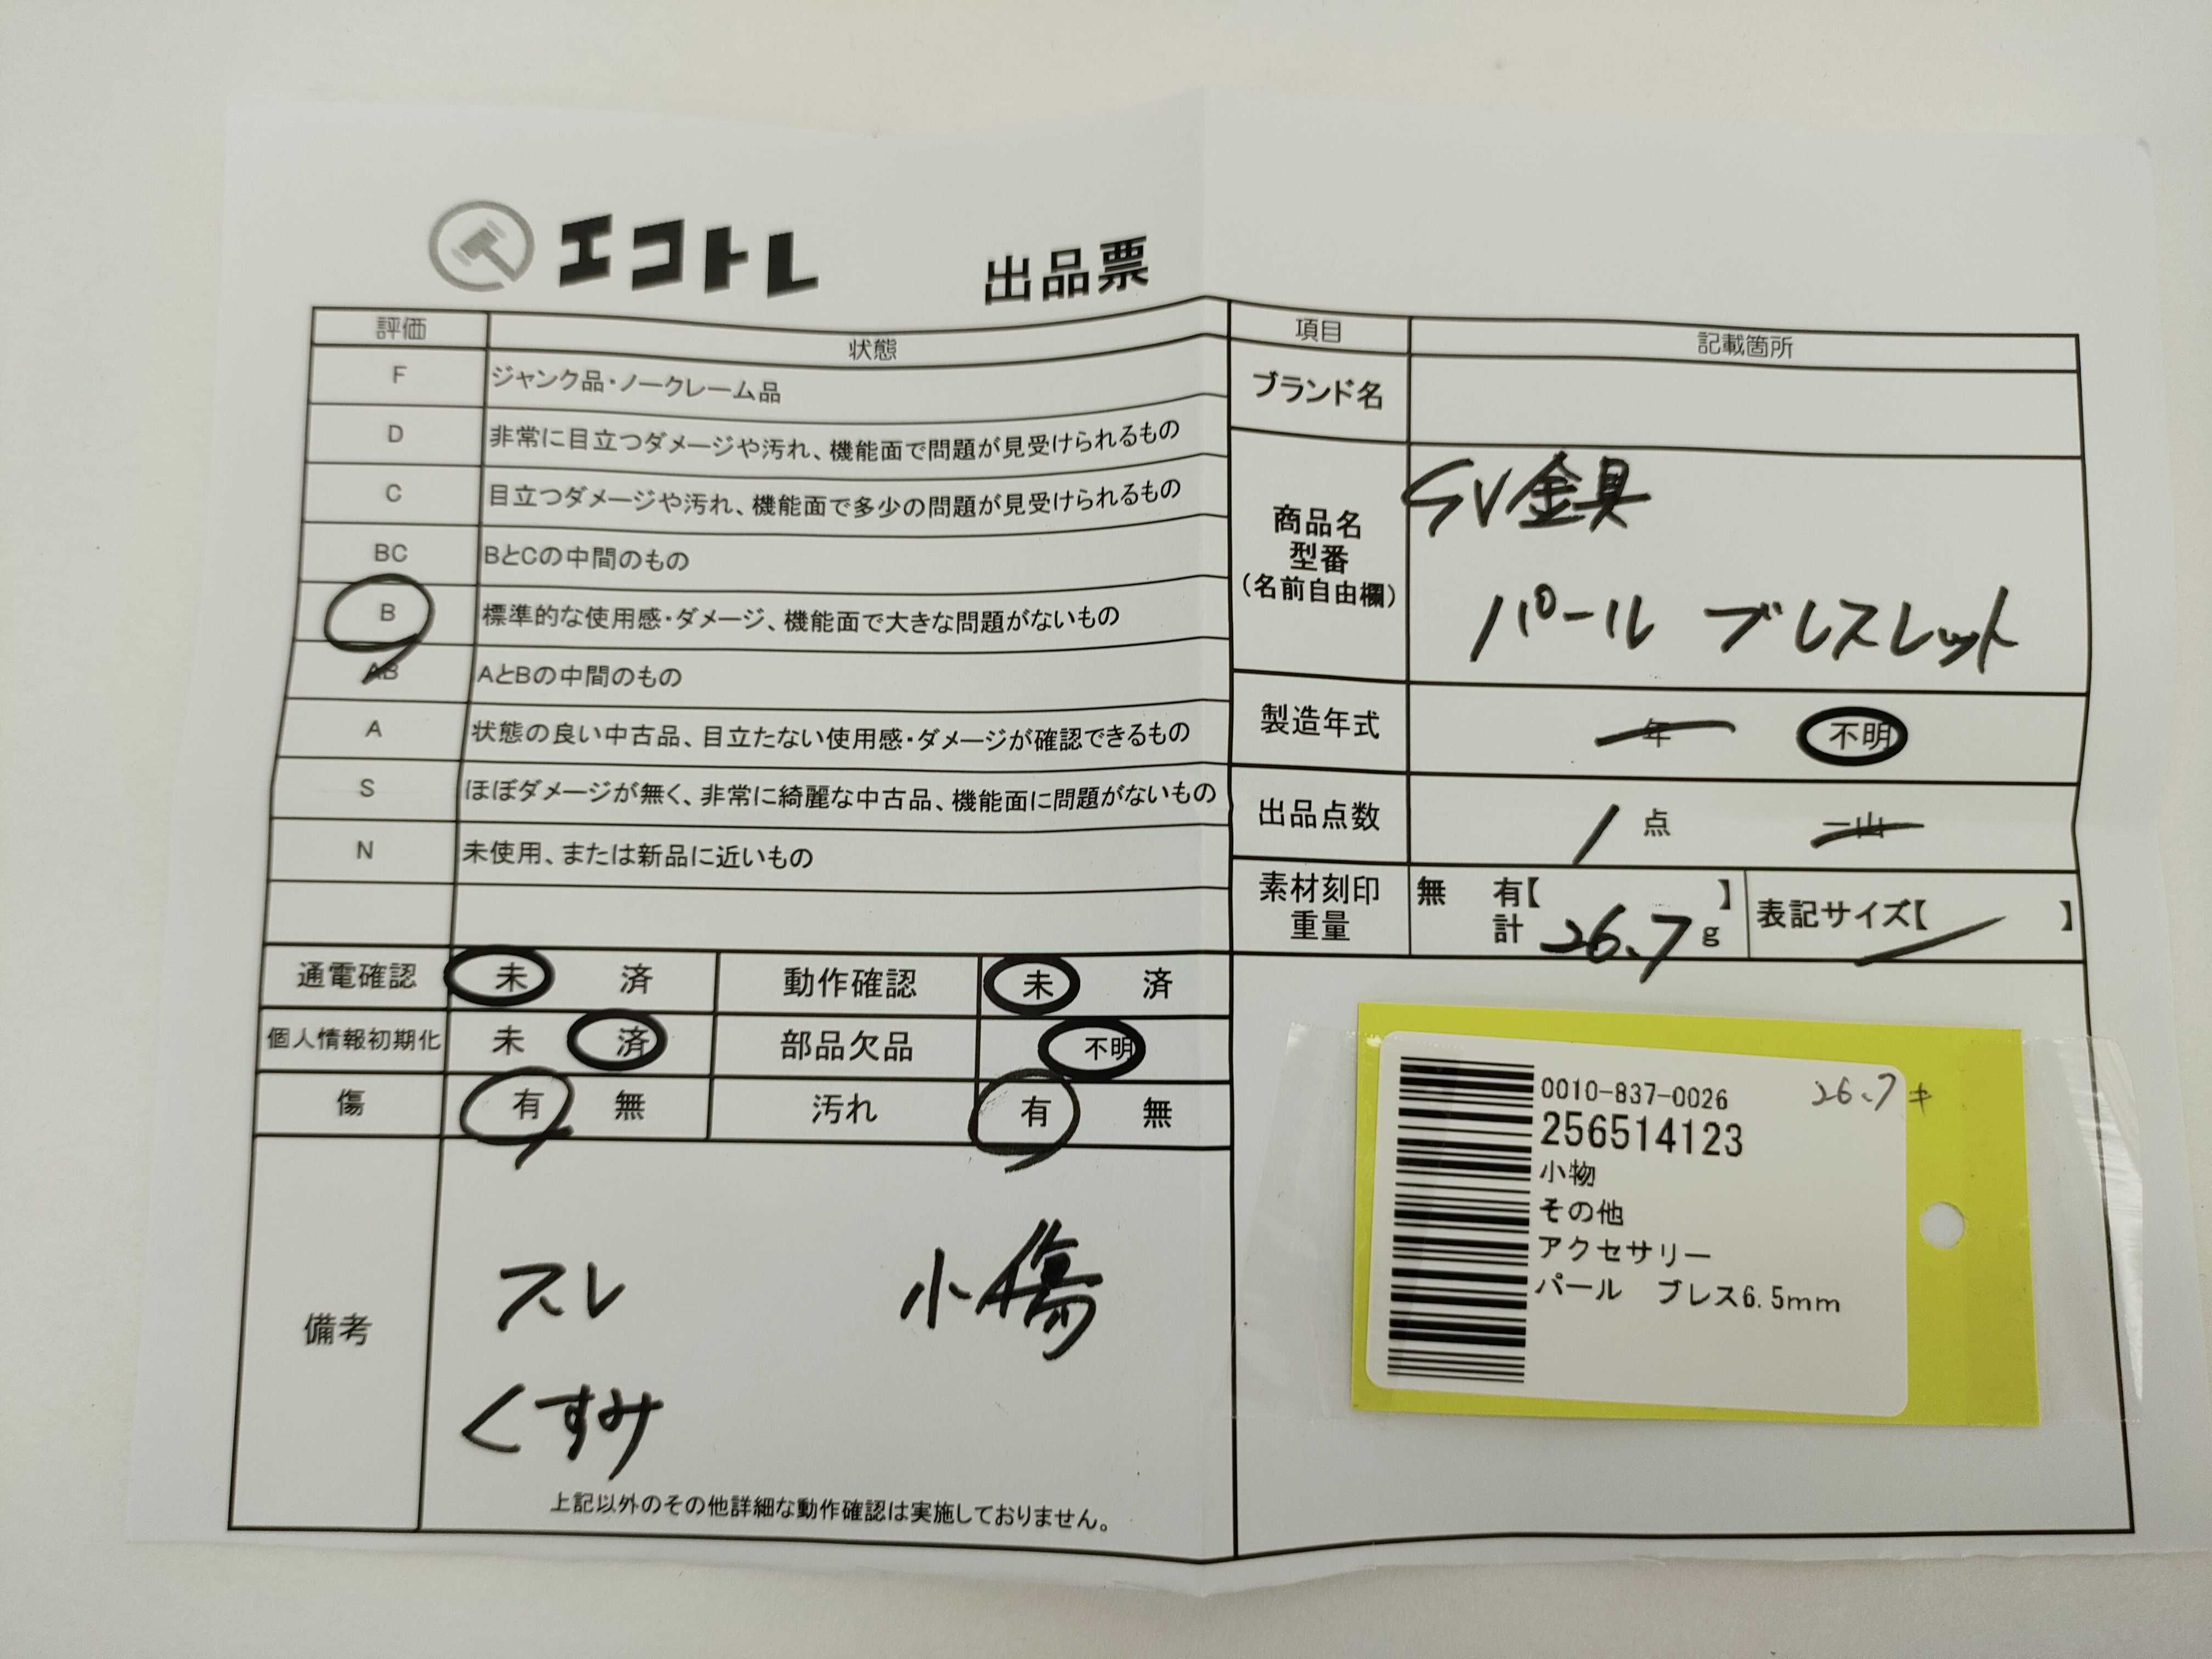 エコトレ 出品票
評価 状態
F ジャンク品・ノークレーム品
D 非常に目立つダメージや汚れ、機能面で問題が見受けられるもの
C 目立つダメージや汚れ、機能面で多少の問題が見受けられるもの
BC BとCの中間のもの
B 標準的な使用感・ダメージ、機能面で大きな問題がないもの
AB AとBの中間のもの
A 状態の良い中古品、目立たない使用感・ダメージが確認できるもの
S ほぼダメージが無く、非常に綺麗な中古品、機能面に問題がないもの
N 未使用、または新品に近いもの
通電確認 未 済 動作確認 未 済
個人情報初期化 未 済 部品欠品 不明
傷 有 無 汚れ 有 無
備考
スレ 小傷
くすみ
上記以外のその他詳細な動作確認は実施しておりません。
項目 記載箇所
ブランド名
商品名
型番
(名前自由欄)
SV金具
パール ブレスレット
製造年式 年 不明
出品点数 1 点 一山
素材刻印
重量
無 有【 】
計 26.7 g
表記サイズ【 】
0010-837-0026 26.7
256514123
小物
その他
アクセサリー
パール ブレス6.5mm